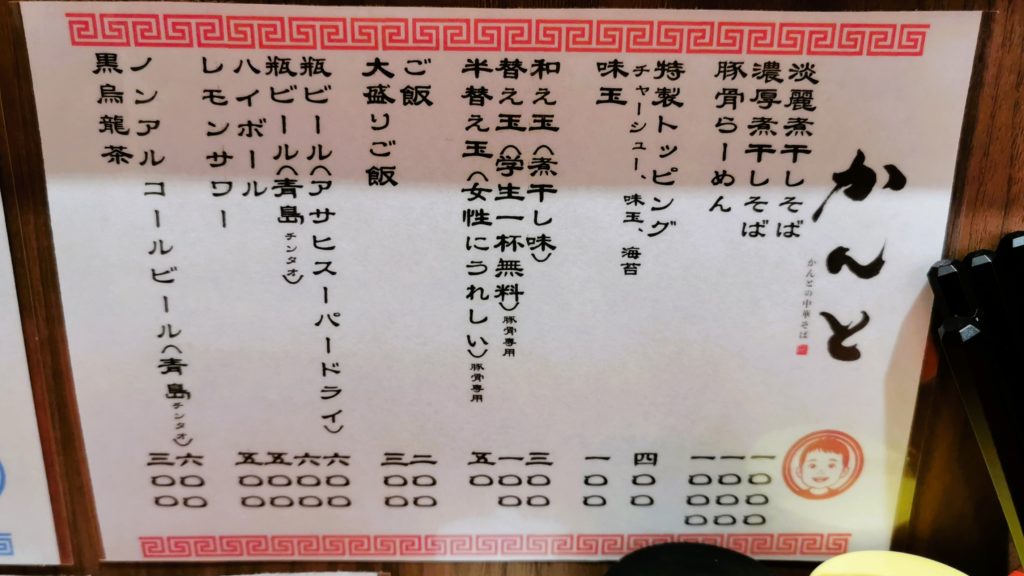 かんと
かんとの中華そば
淡麗煮干しそば 一〇〇〇
濃厚煮干しそば 一〇〇〇
豚骨らーめん 一〇〇〇
特製トッピング 四〇〇
チャーシュー、味玉、海苔
味玉 一〇〇
和え玉(煮干し味) 三〇〇
替え玉(学生一杯無料)豚骨専用 一〇〇
半替え玉(女性にうれしい)豚骨専用 五〇
ご飯 二〇〇
大盛りご飯 三〇〇
瓶ビール(アサヒスーパードライ) 六〇〇
瓶ビール(青島チンタオ) 六〇〇
ハイボール 五〇〇
レモンサワー 五〇〇
ノンアルコールビール(青島チンタオ) 六〇〇
黒烏龍茶 三〇〇